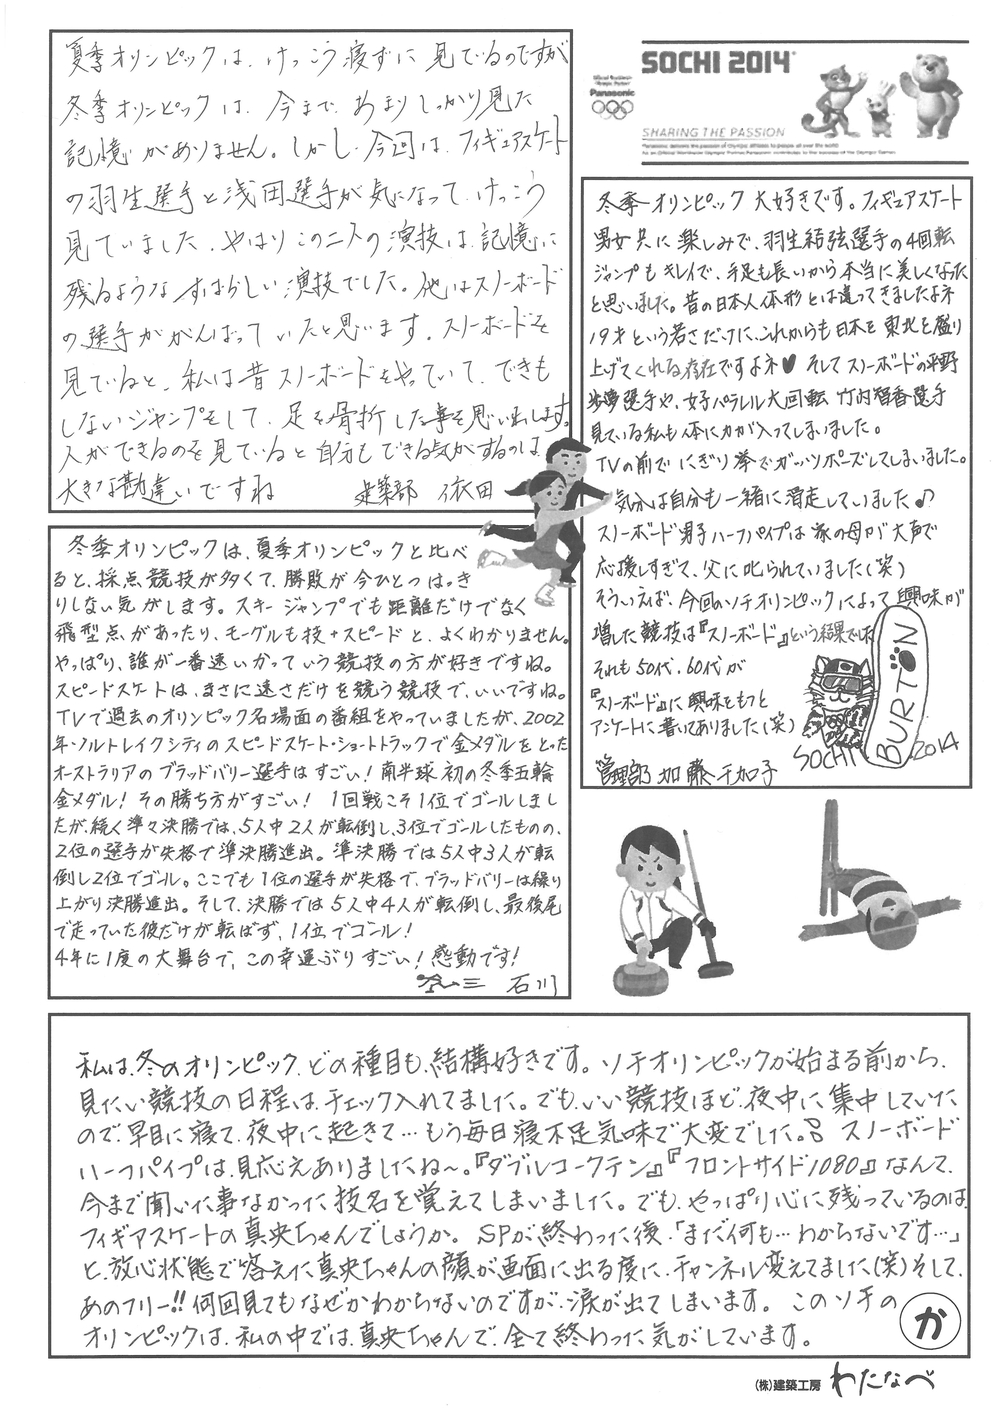 夏季オリンピックは、けっこう寝ずに見ているのですが
冬季オリンピックは、今まで、あまりしっかり見た
記憶がありません。しかし、今回は、フィギュアスケート
の羽生選手と浅田選手が気になって、けっこう
見ていました。やはりこの二人の演技は、記憶に
残るようなすばらしい演技でした。他はスノーボード
の選手ががんばっていたと思います。スノーボードを
見ていると、私は昔スノーボードをやっていて、できも
しないジャンプをして、足を骨折した事を思い出します。
人ができるのを見ていると自分もできる気がするのは、
大きな勘違いですね 建築部 依田
SOCHI 2014
Panasonic
SHARING THE PASSION
冬季オリンピック大好きです。フィギュアスケート
男女共に楽しみで、羽生結弦選手の4回転
ジャンプもキレイで、手足も長いから本当に美しくなった
と思いました。昔の日本人体形とは違ってきましたよネ
19才という若さだけに、これからも日本を東北を盛り
上げてくれる存在ですよネ♥ そしてスノーボードの平野
歩夢選手や、女子パラレル大回転 竹内智香選手
見ている私も体に力が入ってしまいました。
TVの前でにぎり拳でガッツポーズしてしまいました。
気分は自分も一緒に滑走していました♪
スノーボード男子ハーフパイプは家の母が大声で
応援しすぎて、父に叱られていました(笑)
そういえば、今回のソチオリンピックによって興味が
増した競技は『スノーボード』という結果でした
それも50代、60代が
『スノーボード』に興味をもつと
アンケートに書いてありました(笑)
管理部 加藤千加子
SOCHI 2014
BURTON
冬季オリンピックは、夏季オリンピックと比べ
ると、採点競技が多くて、勝敗が今ひとつはっき
りしない気がします。スキージャンプでも距離だけでなく
飛型点があったり、モーグルも技+スピードと、よくわかりません。
やっぱり、誰が一番速いかっていう競技の方が好きですね。
スピードスケートは、まさに速さだけを競う競技で、いいですね。
TVで過去のオリンピック名場面の番組をやっていましたが、2002
年・ソルトレイクシティのスピードスケート・ショートトラックで金メダルをとった
オーストラリアのブラッドバリー選手はすごい!南半球初の冬季五輪
金メダル!その勝ち方がすごい! 1回戦こそ1位でゴールしまし
たが、続く準々決勝では、5人中2人が転倒し、3位でゴールしたものの、
2位の選手が失格で準決勝進出。準決勝では5人中3人が転
倒し2位でゴール。ここでも1位の選手が失格で、ブラッドバリーは繰り
上がり決勝進出。そして、決勝では5人中4人が転倒し、最後尾
で走っていた彼だけが転ばず、1位でゴール!
4年に1度の大舞台で、この幸運ぶりすごい!感動です!
石川
私は、冬のオリンピック、どの種目も、結構好きです。ソチオリンピックが始まる前から、
見たい競技の日程は、チェック入れてました。でも、いい競技ほど、夜中に集中していた
ので、早目に寝て、夜中に起きて…もう毎日寝不足気味で大変でした。 スノーボード
ハーフパイプは、見応えありましたね〜。『ダブルコークテン』『フロントサイド1080』なんて、
今まで聞いた事なかった技名を覚えてしまいました。でも、やっぱり心に残っているのは、
フィギアスケートの真央ちゃんでしょうか。SPが終わった後、「まだ何も…わからないです…」
と、放心状態で答えた真央ちゃんの顔が画面に出る度に、チャンネル変えてました(笑)そして、
あのフリー!!何回見てもなぜかわからないのですが、涙が出てしまいます。このソチの
オリンピックは、私の中では、真央ちゃんで、全て終わった気がしています。
か
(株)建築工房 わたなべ